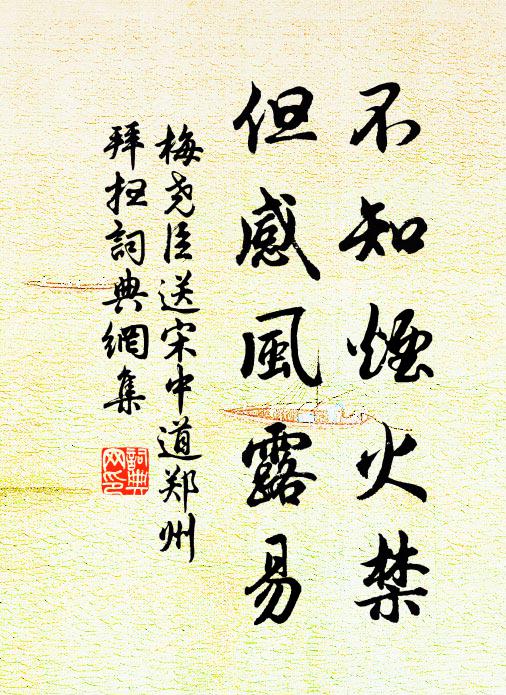 不知煙火禁
但感風露易
梅尧臣送宋中道郑州
拜抂詞典網集
詞典網印